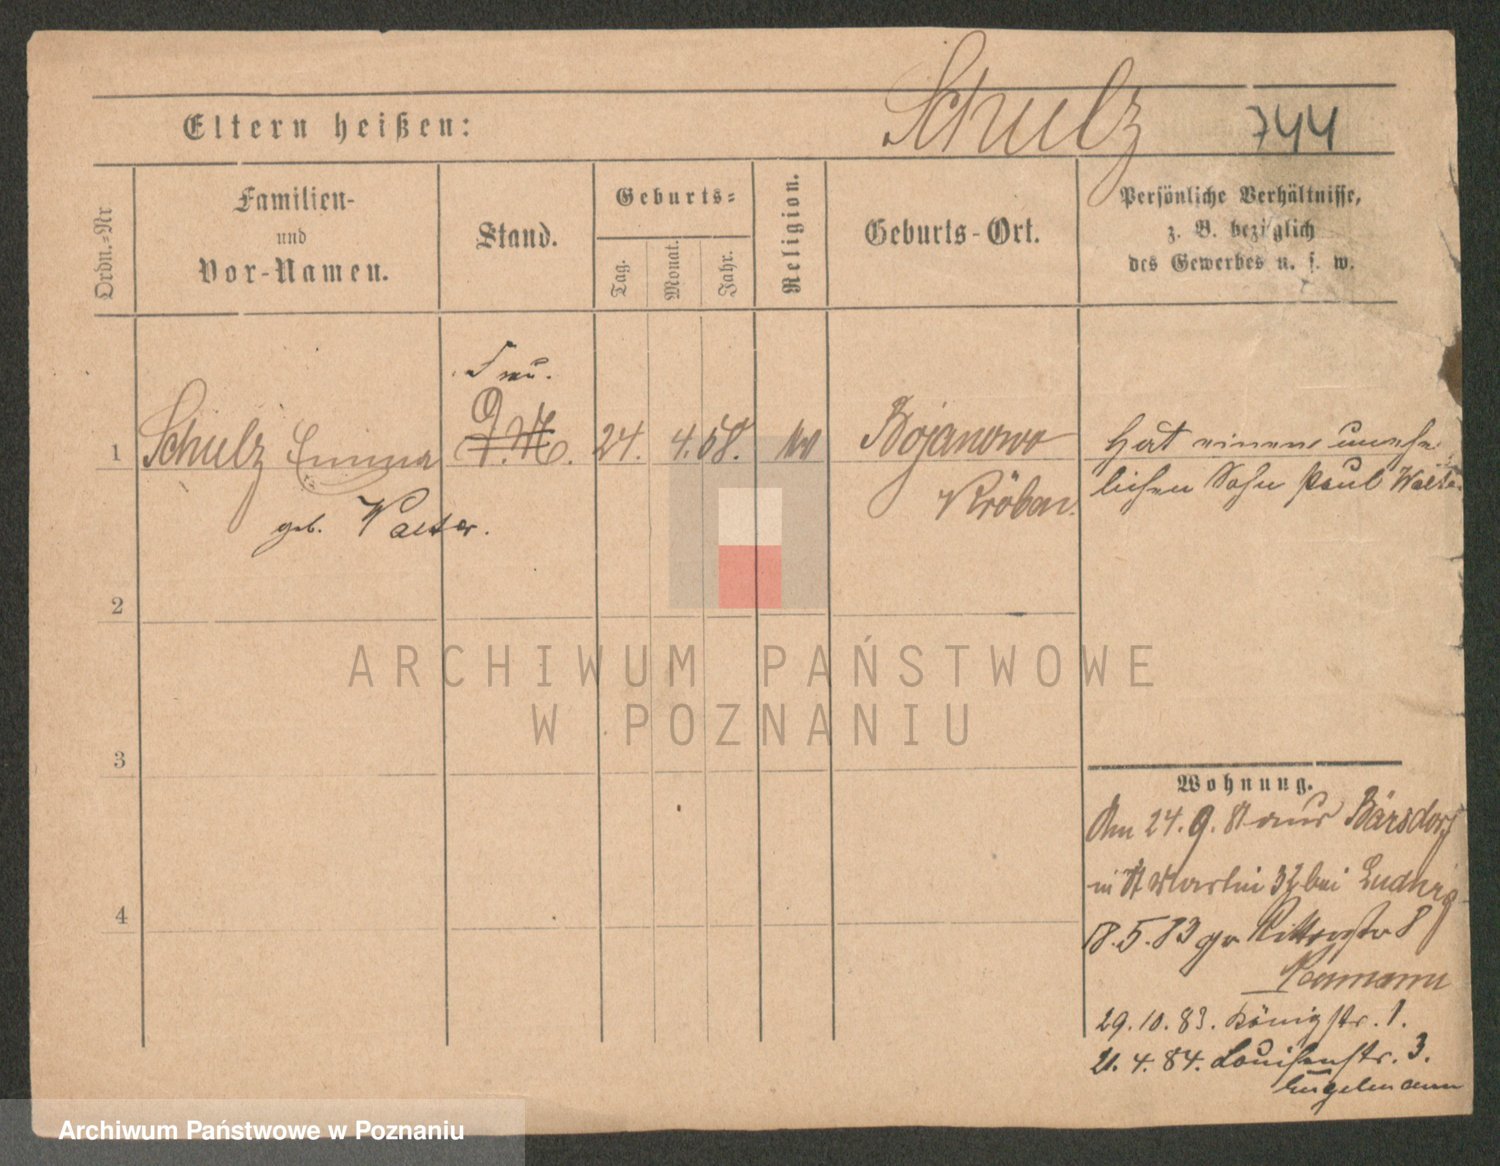 Schulz 744
Eltern heißen:
Ordn.=Nr
Familien-
und
Vor-Namen.
Stand.
Geburts=
Tag.
Monat.
Jahr.
Religion.
Geburts-Ort.
Persönliche Verhältnisse,
z. B. bezüglich
des Gewerbes u. s. w.
1
Schulz Emma
geb. Walter.
Frau.
D. M.
24. 4. 58.
Bojanowo
Kröben.
Hat einen unehe
lichen Sohn Paul Walter
2
3
4
Wohnung.
Am 24. 9. aus Bärsdorf
in St Martin 32 bei Ludwig
18. 5. 83 Ritterstr 8
Neumann
29. 10. 83. Königstr. 1.
21. 4. 84. Louisenstr. 3.
Engelmann
ARCHIWUM PAŃSTWOWE
W POZNANIU
Archiwum Państwowe w Poznaniu